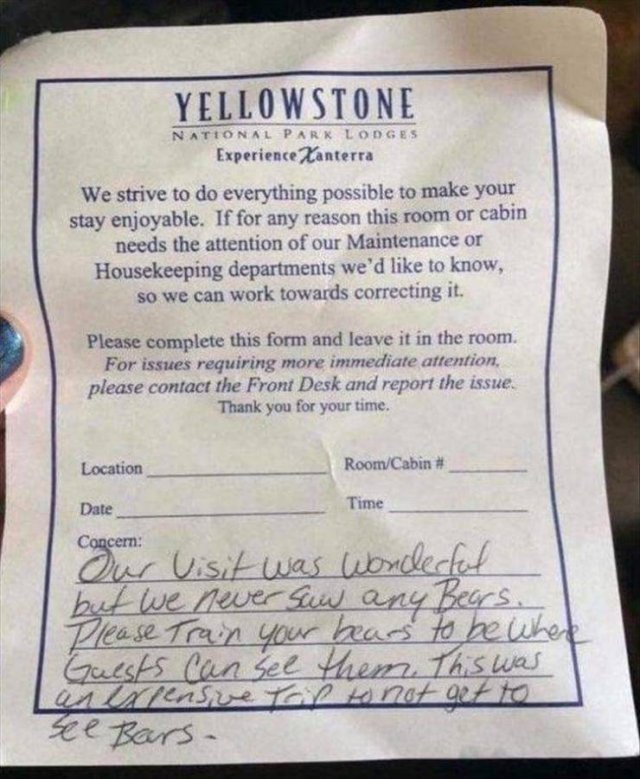 YELLOWSTONE
NATIONAL PARK LODGES
Experience Xanterra
We strive to do everything possible to make your
stay enjoyable. If for any reason this room or cabin
needs the attention of our Maintenance or
Housekeeping departments we'd like to know,
so we can work towards correcting it.
Please complete this form and leave it in the room.
For issues requiring more immediate attention,
please contact the Front Desk and report the issue.
Thank you for your time.
Location Room/Cabin #
Date Time
Concern:
Our Visit was Wonderful
but we never saw any Bears.
Please Train your bears to be where
Guests Can See them. This was
an expensive Trip to not get to
See Bears.